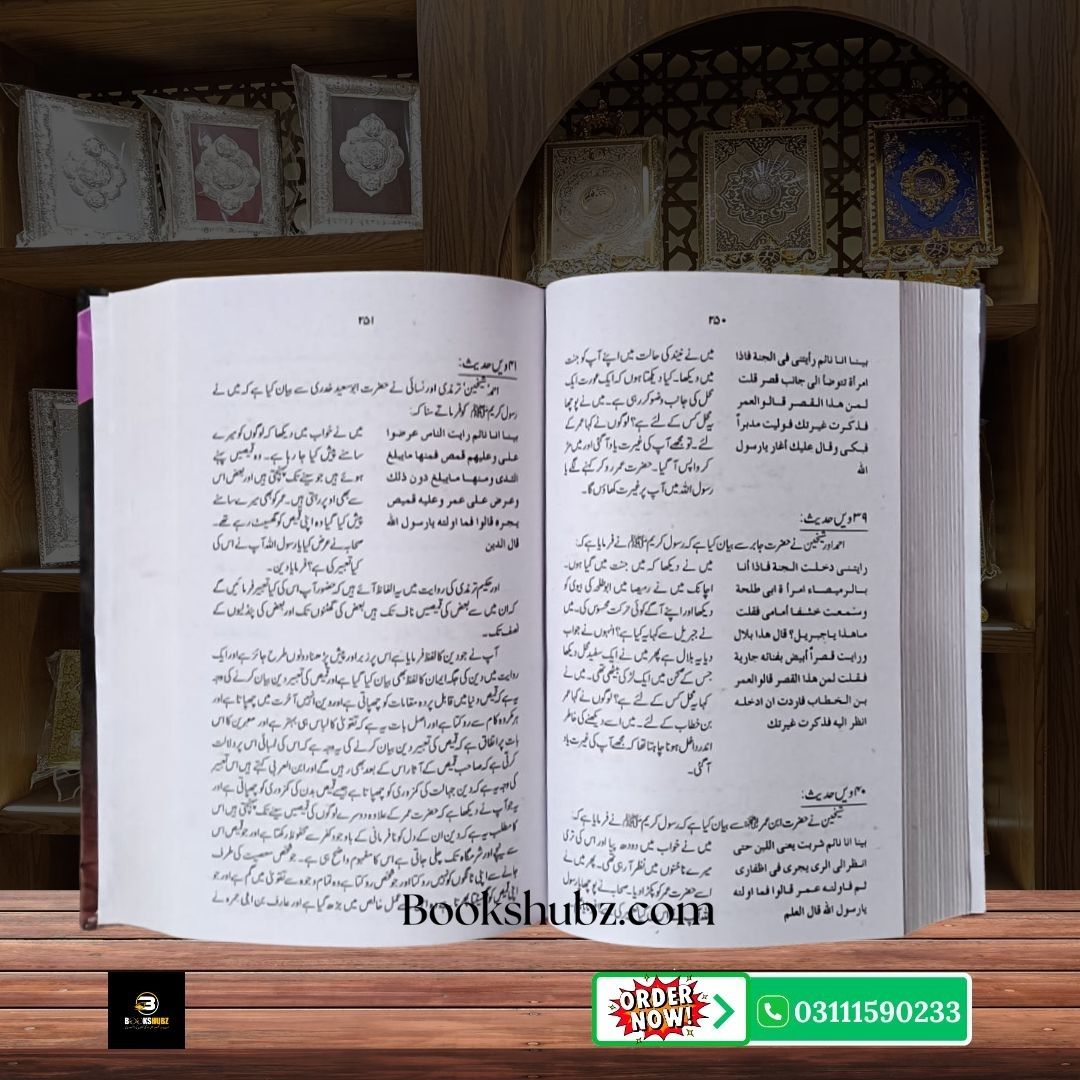 ۲۵۰
بينا انا نائم رأيتنى فى الجنة فاذا
امرأة تتوضأ الى جانب قصر قلت
لمن هذا القصر قالو العمر
فذكرت غيرتك فوليت مدبراً
فبكى وقال عليك أغار يارسول
الله
میں نے نیند کی حالت میں اپنے آپ کو جنت
میں دیکھا۔ کیا دیکھتا ہوں کہ ایک عورت ایک
محل کی جانب وضو کر رہی ہے۔ میں نے پوچھا
یہ محل کس کے لئے ہے؟ لوگوں نے کہا عمر کے
لئے۔ تو مجھے آپ کی غیرت یاد آگئی اور میں مڑ
کر واپس آ گیا۔ حضرت عمر رو کر کہنے لگے یا
رسول اللہ میں آپ پر غیرت کھاؤں گا۔
۳۹ ویں حدیث:
احمد اور شیخین نے حضرت جابر سے بیان کیا ہے کہ رسول کریم ﷺ نے فرمایا ہے کہ:
رايتنى دخلت الجنة فاذا أنا
بالرميصاء امرأة ابى طلحة
وسمعت خشفا أمامى فقلت
ماهذا ياجبريل؟ قال هذا بلال
ورايت قصراً أبيض بفنائه جارية
فقلت لمن هذا القصر قالو العمر
بن الخطاب فاردت ان ادخله
انظر اليه فذكرت غيرتك
میں نے دیکھا کہ میں جنت میں گیا ہوں۔
اچانک میں نے رمیصا میں ابو طلحہ کی بیوی کو
دیکھا اور اپنے آگے کوئی حرکت محسوس کی۔ میں
نے جبریل سے کہا یہ کیا ہے؟ انہوں نے جواب
دیا یہ بلال ہے پھر میں نے ایک سفید محل دیکھا
جس کے صحن میں ایک لڑکی بیٹھی تھی۔ میں نے
کہا یہ محل کس کے لئے ہے؟ لوگوں نے کہا عمر
بن خطاب کے لئے۔ میں اسے دیکھنے کی خاطر
اندر داخل ہونا چاہتا تھا کہ مجھے آپ کی غیرت یاد
آ گئی۔
۴۰ ویں حدیث:
شیخین نے حضرت ابن عمر سے بیان کیا ہے کہ رسول کریم ﷺ نے فرمایا ہے کہ:
بينا انا نائم شربت يعنى اللبن حتى
انظر الى الرى يجرى فى اظفارى
ثم فاولته عمر قالوا فما اولته
يارسول الله قال العلم
میں نے خواب میں دودھ پیا اور اس کی تری
میرے ناخنوں میں نظر آ رہی تھی۔ پھر میں نے
اسے حضرت عمر کو پکڑا دیا۔ صحابہ نے پوچھا یا رسول
۲۵۱
۴۱ ویں حدیث:
احمد، شیخین، ترمذی اور نسائی نے حضرت ابو سعید خدری سے بیان کیا ہے کہ میں نے
رسول کریم ﷺ کو فرماتے سنا کہ:
بينا انا نائم رايت الناس عرضوا
على وعليهم قمص فمنها مايبلغ
الثدى ومنها مايبلغ دون ذلك
وعرض على عمر وعليه قميص
يجره قالوا فما اولته يارسول الله
قال الدين
میں نے خواب میں دیکھا کہ لوگوں کو میرے
سامنے پیش کیا جا رہا ہے۔ وہ قمیص پہنے
ہوئے ہیں جو سینے تک پہنچتی ہیں اور بعض اس
سے بھی اوپر رہتی ہیں۔ عمر کو بھی میرے سامنے
پیش کیا گیا وہ اپنی قمیص کو گھسیٹ رہے تھے۔
صحابہ نے عرض کیا یا رسول اللہ آپ نے اس کی
کیا تعبیر کی ہے؟ فرمایا دین۔
اور حکیم ترمذی کی روایت میں یہ الفاظ آئے ہیں کہ حضور آپ اس کی کیا تعبیر فرمائیں گے
کہ ان میں سے بعض کی قمیصیں ناف تک ہیں بعض کی گھٹنوں تک اور بعض کی پنڈلیوں کے
نصف تک۔
آپ نے جو دین کا لفظ فرمایا ہے اس پر زبر اور پیش پڑھنا دونوں طرح جائز ہے اور ایک
روایت میں دین کی جگہ ایمان کا لفظ بھی بیان کیا گیا ہے اور قمیص کی تعبیر دین بیان کرنے کی وجہ
یہ ہے کہ قمیص دنیا میں قابل پردہ مقامات کو چھپاتی ہے اور دین انہیں آخرت میں چھپاتا ہے اور
ہر مکروہ کام سے روکتا ہے اور اصل بات یہ ہے کہ تقویٰ کا لباس ہی بہتر ہے اور معبرین کا اس
بات پر اتفاق ہے کہ قمیص کی تعبیر دین بیان کرنے کی یہ وجہ ہے کہ اس کی لمبائی اس پر دلالت
کرتی ہے کہ صاحب قمیص کے آثار اس کے بعد بھی رہیں گے اور ابن العربی کہتے ہیں اس تعبیر
کی وجہ یہ ہے کہ دین جہالت کی کمزوری کو چھپاتا ہے جیسے قمیص بدن کی کمزوری کو چھپاتی ہے اور
یہ جو آپ نے دیکھا ہے کہ حضرت عمر کے علاوہ دوسرے لوگوں کی قمیصیں سینے تک پہنچتی ہیں اس
کا مطلب یہ ہے کہ دین ان کے دل کو نافرمانی کے باوجود کفر سے محفوظ رکھتا ہے اور جو قمیص اس
سے نیچے اور شرمگاہ تک چلی جاتی ہے اس کا مفہوم واضح ہی ہے۔ جو شخص معصیت کی طرف
جانے سے اپنی ٹانگوں کو نہیں روکتا اور جو شخص روکتا ہے وہ تمام وجوہ سے تقویٰ میں گم ہے اور جو
Bookshubz.com
BOOKSHUBZ
ORDER
NOW!
03111590233